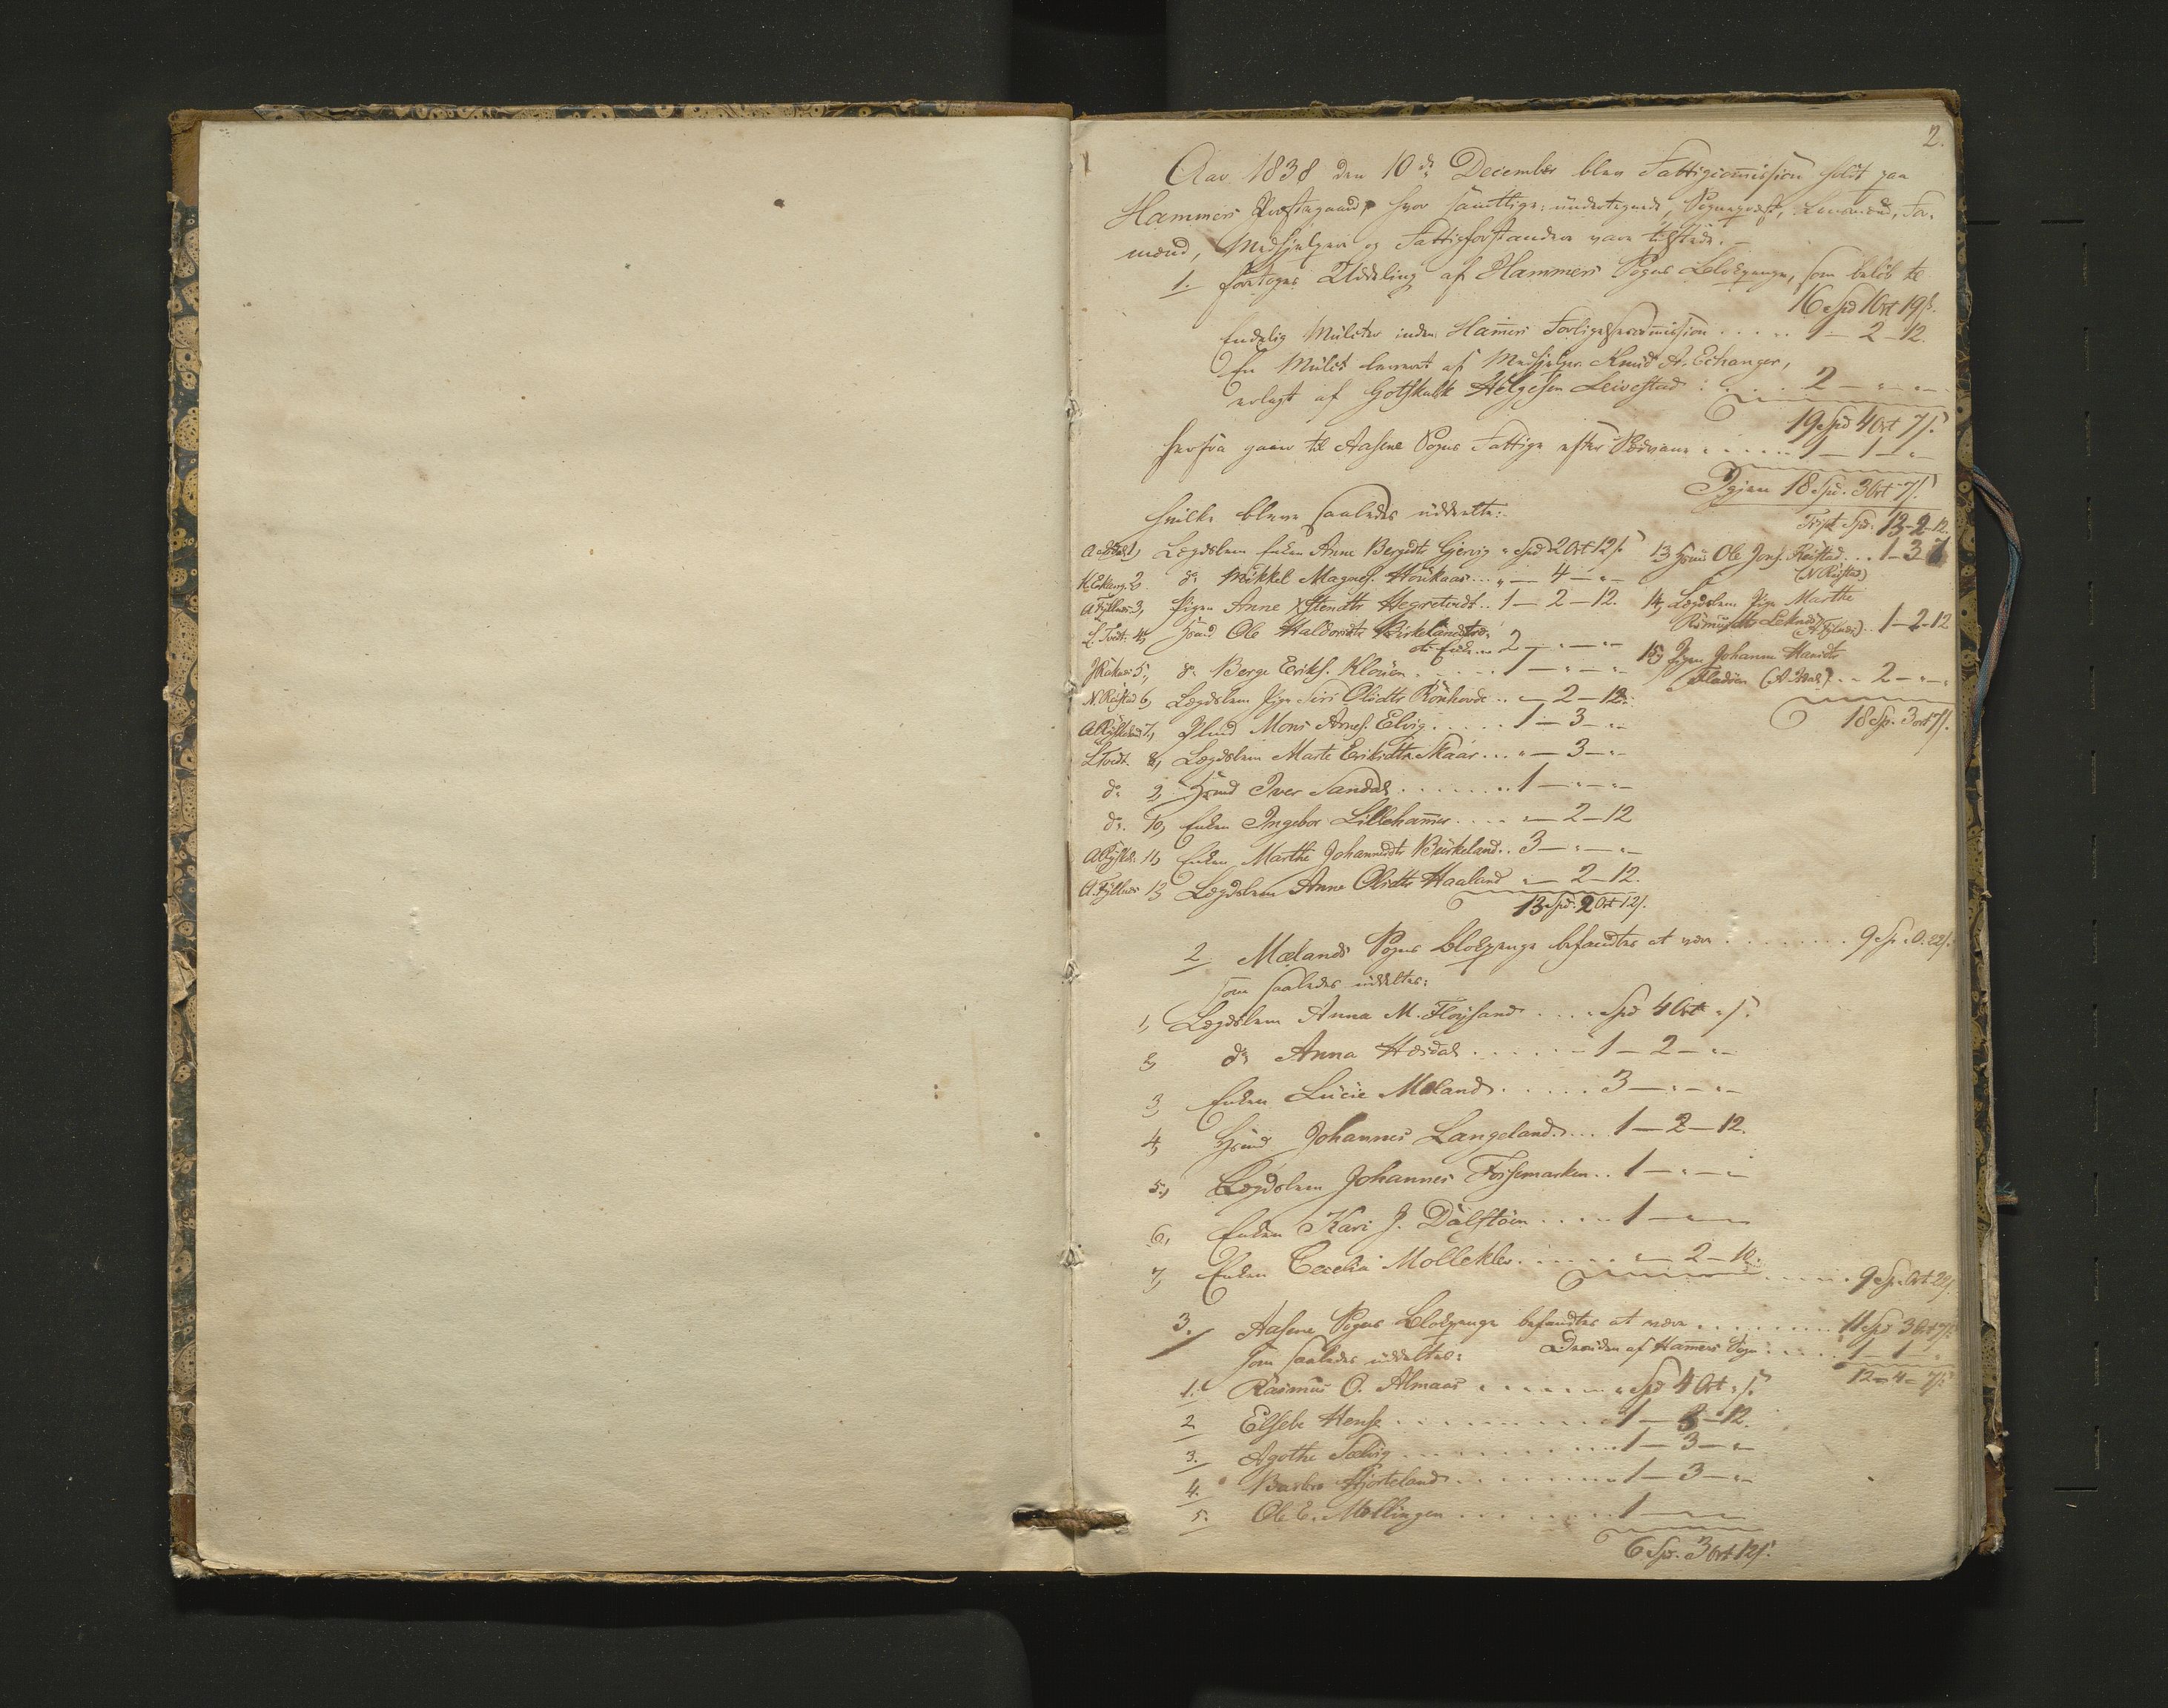 2.
Aar 1838 den 10de December blev Fattigcommission holdt paa
Hammers Præstegaard, hvor samtlige undertegnede, Sognepræst, Lensmænd, For-
mænd, Medhjelpere og Fattigforstandere vare tilstede. —
1. foretoges Uddeling af Hammers Sogns Blokpenge, som beløb til
16 Spd 1 Ort 19 s.
Endelig Mulcter inden Hamers Forligelsescommission ..... 1 — 2 — 12.
En Mulct leveret af Medhjelper Knud A. Echanger,
erlagt af Gotskalk Helgesen Leivestad .... 2 — " — "
19 Spd 4 Ort 7 s.
herfra gaaer til Aasene Sogns Fattige efter Sædvane ..... 1 — 1 — "
Igjen 18 Spd. 3 Ort 7 s.
hvilke bleve saaledes uddeelte:
1, Lægdslem Enken Anne Bergedtr Gjervig " Spd 2 Ort 12 s
2, do Mikkel Magnes. Houkaas ... " — 4 — "
A Fyllnes 3, Pigen Anne Stendtr Hegretvedt .. 1 — 2 — 12.
L. Tvedt. 4, Huusmd Ole Haldorsens Birkelandtræ
ds Enke ... 2 — " — "
5, do Berge Eriks. Klouen ..... 1 — " — "
N. Reistad 6, Lægdslem Pige Siri Olsdtr Rønhovde .. " — 2 — 12.
7, Blind Mons Arnes. Elvig ..... 1 — 3 — "
L Tvedt. 8, Lægdslem Marte Eriksdtr Skaar ... " — 3 — "
do 9, Huusmd Iver Sandal ....... 1 — " — "
do. 10, Enken Ingebor Lillehamer .... " — 2 — 12
11, Enken Marthe Johannesdtr Birkeland .. 3 — " — "
A. Fyllnes 13 Lægdslem Anne Olsdtr Haaland " — 2 — 12.
13 Spd. 2 Ort 12 s.
Tr[...]pt Spd: 13 — 2 — 12.
13 Huusmd Ole Jons. Reistad ... 1 — 3 — 7
(N Reistad)
14, Lægdslem Pige Marthe
Rasmusdtr Leknes (A Fyllnes) .. 1 — 2 — 12
15, Pigen Johanne Hansdtr
Fladøen .. 2 — " — "
18 Sp. 3 ort 7 s.
2 Mælands Sogns Blokpenge befandtes at være ........ 9 Sp. 0. 22 s.
som saaledes uddeltes:
1, Lægdslem Anna M. Fløysand .... " Spd 4 Ort " s.
2, do Anna Hesdal ...... 1 — 2 — "
3, Enken Lucie Mæland ..... 3 — " — "
4, Huusmd Johannes Langeland ... 1 — 2 — 12.
5, Lægdslem Johannes Fossemarken .. 1 — " — "
6, Enken Kari J. Dalstøen ..... 1 — " — "
7, Enken Cecelia Molleklev ...... " — 2 — 10.
...... 9 Sp. " Ort 22 s.
3. Aasene Sogns Blokpenge befandtes at være ......... 11 Spd 3 Ort 7 s.
Desuden af Hamers Sogn ..... 1 — 1 — "
som saaledes uddeltes:
12 — 4 — 7 s.
1. Rasmus O. Almaas ....... " Spd 4 Ort " s.
2 Elsebe Hense ......... 1 — 3 — 12.
3. Agothe Sælvig ......... 1 — 3 — "
4. Barbro Hjorteland ........ 1 — 3 — "
5. Ole E. Mollingen ....... 1 — " — "
6 Spd. 3 Ort 12 s.